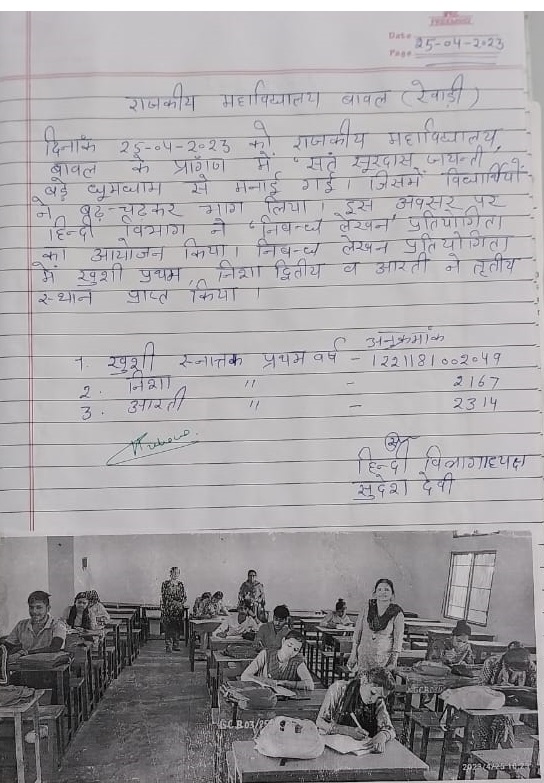 Date 25-04-2023
Page
राजकीय महाविद्यालय बावल (रेवाड़ी)
दिनांक 25-04-2023 को राजकीय महाविद्यालय,
बावल के प्राँगण में 'संत सूरदास जयन्ती'
बड़े धूमधाम से मनाई गई। जिसमें विद्यार्थियों
ने बढ़-चढ़कर भाग लिया। इस अवसर पर
हिन्दी विभाग ने 'निबन्ध लेखन' प्रतियोगिता
का आयोजन किया। निबन्ध लेखन प्रतियोगिता
में खुशी प्रथम, निशा द्वितीय व आरती ने तृतीय
स्थान प्राप्त किया।
अनुक्रमांक
1. खुशी स्नात्तक प्रथम वर्ष - 1221181002049
2. निशा " - 2167
3. आरती " - 2314
हिन्दी विभागाध्यक्ष
सुदेश देवी
2023/4/25